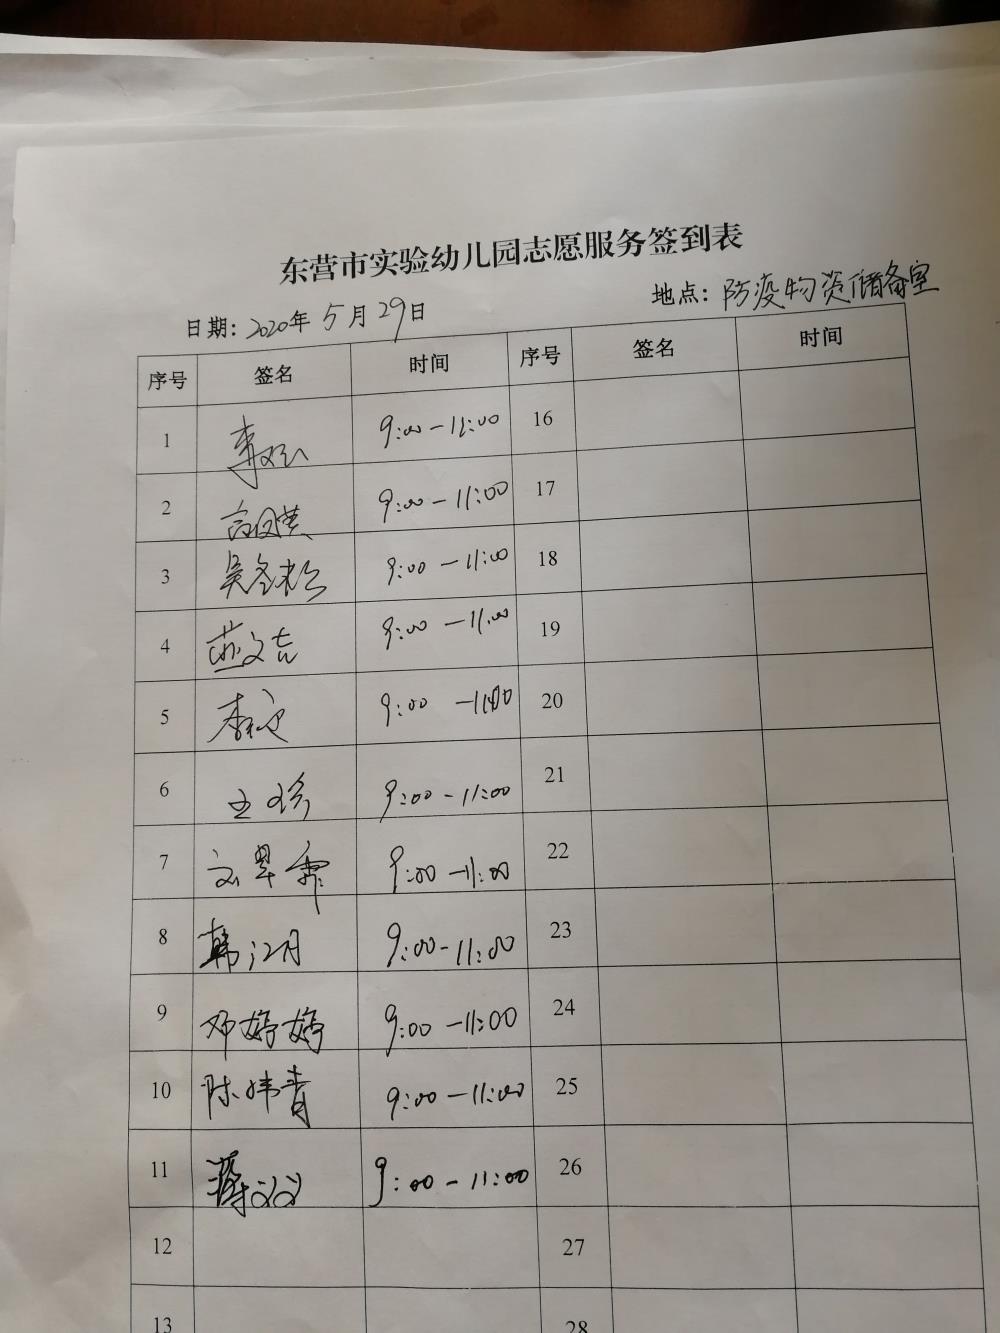 东营市实验幼儿园志愿服务签到表
日期：2020年 5 月 29日 地点：防疫物资储备室
序号 签名 时间 序号 签名 时间
1 9:00-11:00 16
2 9:00-11:00 17
3 吴冬松 9:00-11:00 18
4 燕文吉 9:00-11:00 19
5 9:00-11:00 20
6 王珍 9:00-11:00 21
7 刘翠霏 9:00-11:00 22
8 韩江月 9:00-11:00 23
9 邓婷婷 9:00-11:00 24
10 陈炜青 9:00-11:00 25
11 9:00-11:00 26
12 27
13 28